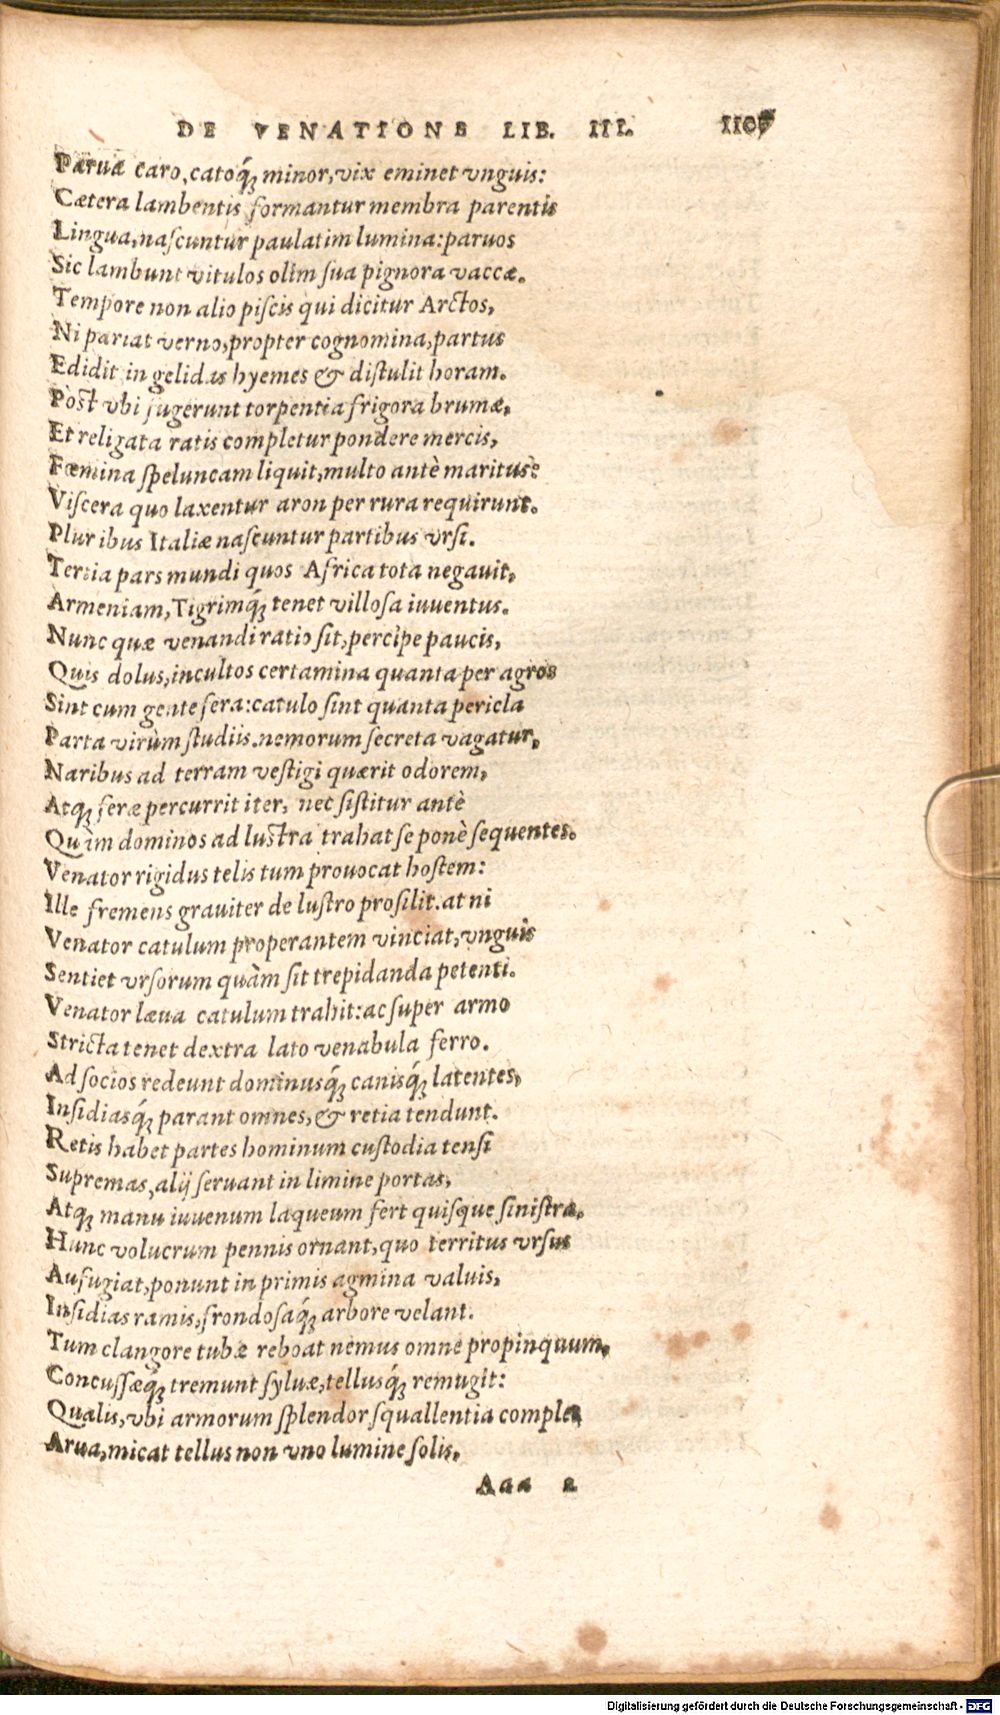 DE VENATIONE LIB. III.
Paruæ caro, catoq́; minor, vix eminet vnguis:
Cætera lambentis formantur membra parentis
Lingua, nascuntur paulatim lumina: paruos
Sic lambunt vitulos olim sua pignora vaccæ.
Tempore non alio piscis qui dicitur Arctos,
Ni pariat verno, propter cognomina, partus
Edidit in gelidas hyemes & distulit horam.
Pòst vbi fugerunt torpentia frigora brumæ,
Et religata ratis completur pondere mercis,
Fæmina speluncam liquit, multo antè maritus:
Viscera quo laxentur aron per rura requirunt.
Pluribus Italiæ nascuntur partibus vrsi.
Tertia pars mundi quos Africa tota negauit,
Armeniam, Tigrimq́; tenet villosa iuuentus.
Nunc quæ venandi ratio sit, percipe paucis,
Quis dolus, incultos certamina quanta per agros
Sint cum gente fera: catulo sint quanta pericla
Parta virûm studiis. nemorum secreta vagatur,
Naribus ad terram vestigi quærit odorem,
Atq; feræ percurrit iter, nec sistitur antè
Quàm dominos ad lustra trahat se ponè sequentes.
Venator rigidus telis tum prouocat hostem:
Ille fremens grauiter de lustro prosilit. at ni
Venator catulum properantem vinciat, vnguis
Sentiet vrsorum quàm sit trepidanda petenti.
Venator læua catulum trahit: ac super armo
Stricta tenet dextra lato venabula ferro.
Ad socios redeunt dominusq́; canisq́; latentes,
Insidiasq́; parant omnes, & retia tendunt.
Retis habet partes hominum custodia tensi
Supremas, alij seruant in limine portas,
Atq; manu iuuenum laqueum fert quisque sinistra.
Hunc volucrum pennis ornant, quo territus vrsus
Aufugiat, ponunt in primis agmina valuis,
Insidias ramis, frondosaq́; arbore velant.
Tum clangore tubæ reboat nemus omne propinquum,
Concussæq́; tremunt syluæ, tellusq́; remugit:
Qualis, vbi armorum splendor squallentia complet
Arua, micat tellus non vno lumine solis.
Aaa 2
Digitalisierung gefördert durch die Deutsche Forschungsgemeinschaft - DFG